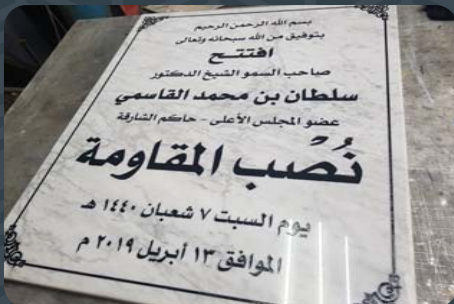 بسم الله الرحمن الرحيم
بتوفيق من الله سبحانه وتعالى
افتتح
صاحب السمو الشيخ الدكتور
سلطان بن محمد القاسمي
عضو المجلس الأعلى - حاكم الشارقة
نُصْب المقاومة
يوم السبت ٧ شعبان ١٤٤٠ هـ
الموافق ١٣ أبريل ٢٠١٩ م